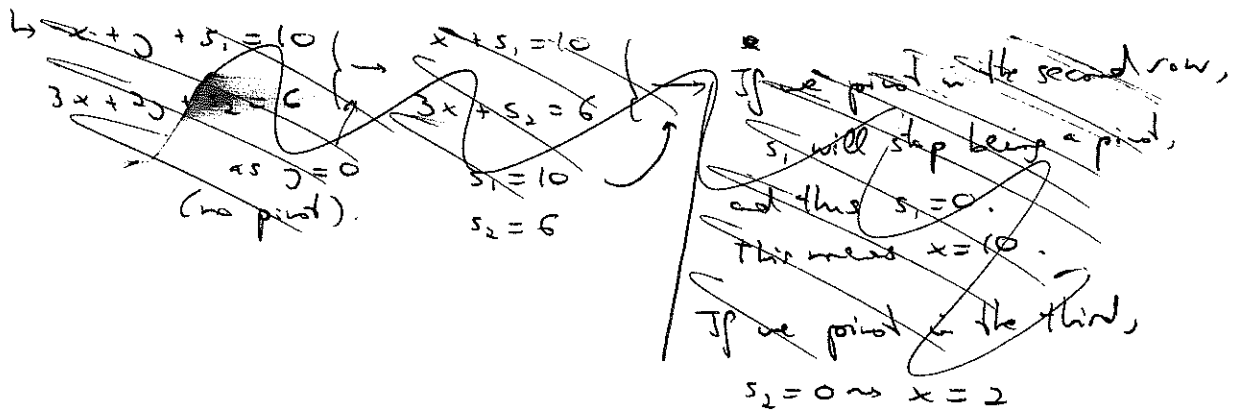 ↳ x + y + s₁ = 10
3x + 2y + s₂ = 6
as y = 0
(no pivot).
→
x + s₁ = 10
3x + s₂ = 6
s₁ = 10
s₂ = 6
→
If we pivot in the second row,
s₁ will stop being a pivot,
and thus s₁ = 0.
This means x = 10.
If we pivot in the third,
s₂ = 0 ⇝ x = 2